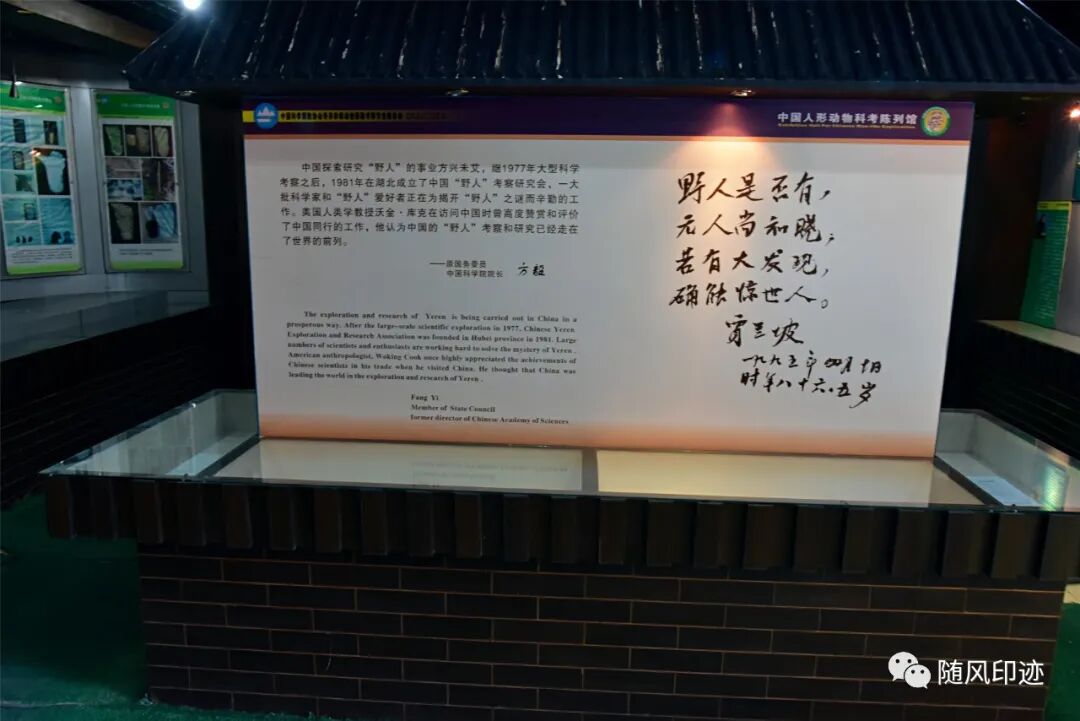 中国人形动物科考陈列馆
中国探索研究“野人”的事业方兴未艾，继1977年大型科学
考察之后，1981年在湖北成立了中国“野人”考察研究会，一大
批科学家和“野人”爱好者正在为揭开“野人”之谜而辛勤的工
作。美国人类学教授沃金·库克在访问中国时曾高度赞赏和评价
了中国同行的工作，他认为中国的“野人”考察和研究已经走在
了世界的前列。
——原国务委员
中国科学院院长 方毅
The exploration and research of Yeren is being carried out in China in a
prosperous way. After the large-scale scientific exploration in 1977, Chinese Yeren
Exploration and Research Association was founded in Hubei province in 1981. Large
numbers of scientists and enthusiasts are working hard to solve the mystery of Yeren .
American anthropologist, Woking Cook once highly appreciated the achievements of
Chinese scientists in his trade when he visited China. He thought that China was
leading the world in the exploration and research of Yeren .
Fang Yi
Member of State Council
former director of Chinese Academy of Sciences
野人是否有，
元人尚和晓，
若有大发现，
确能惊世人。
贾兰坡
一九九五年四月十日
时年八十六·五岁
随风印迹